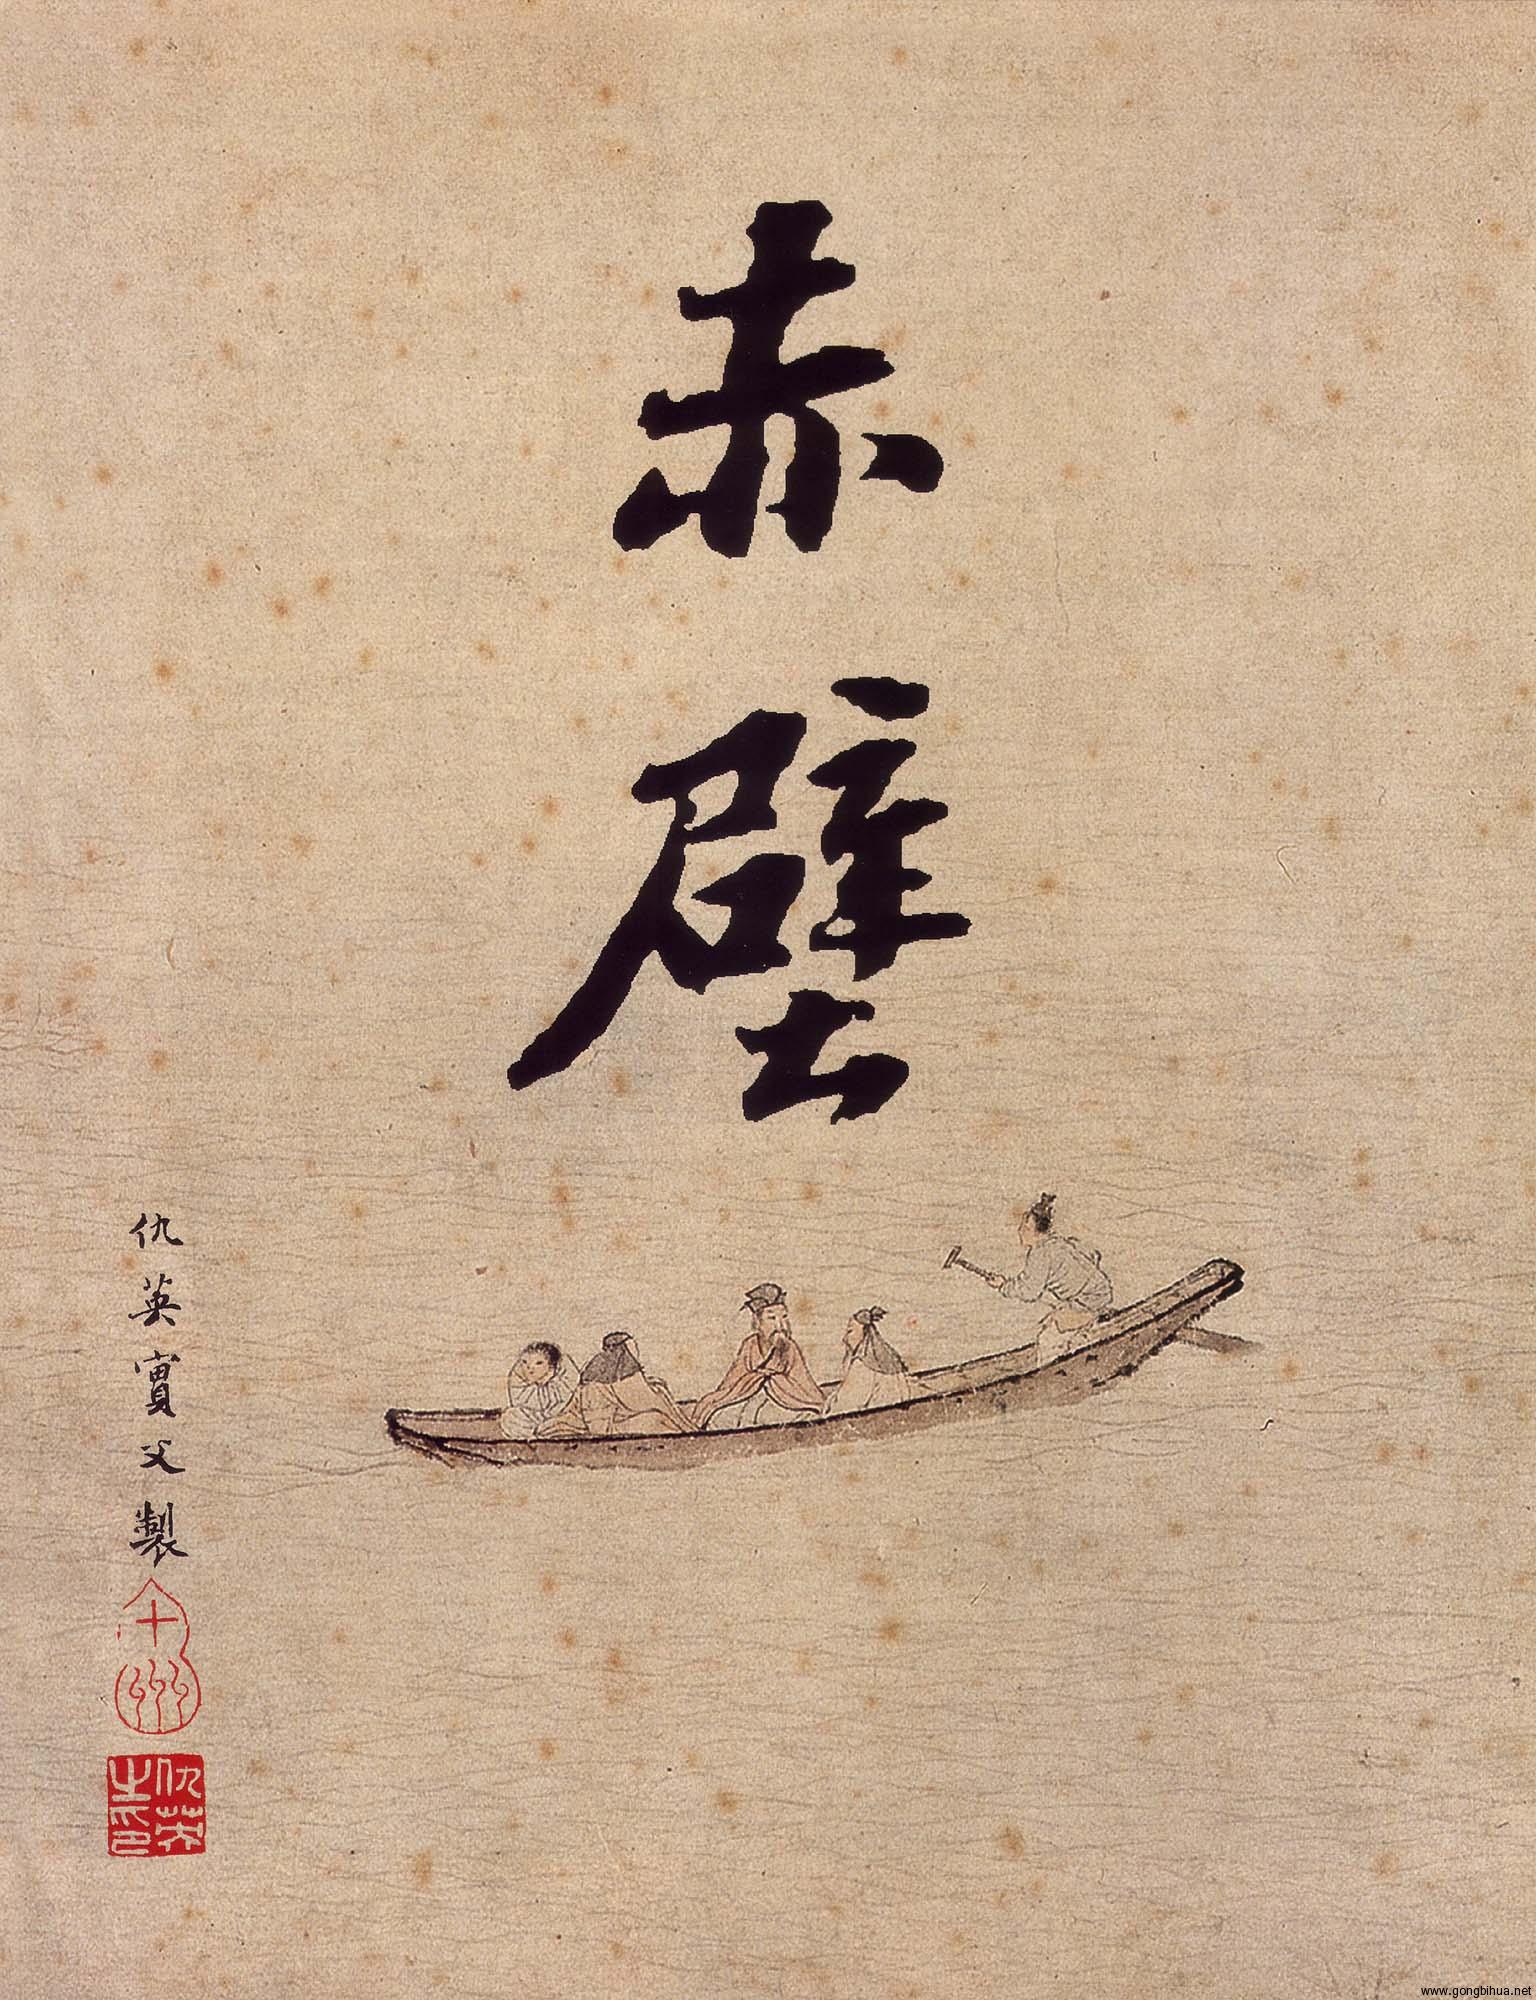 赤壁
仇英實父製
十州
仇英之印
www.gongbihua.net